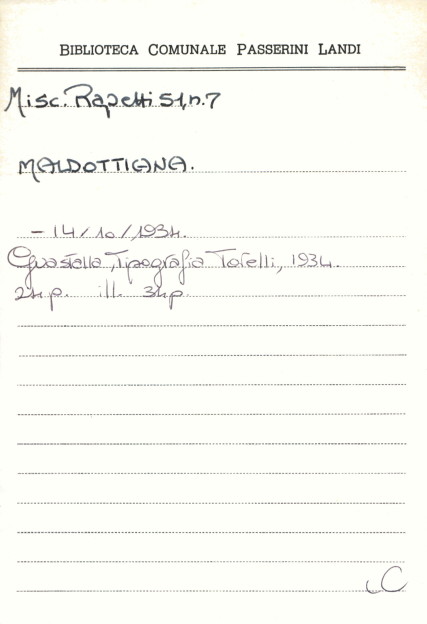 BIBLIOTECA COMUNALE PASSERINI LANDI
Misc. Rapetti 51, n. 7
MALDOTTIANA.
- 14/10/1934.
Guastalla, Tipografia Torelli, 1934.
24 p. ill. 34p.